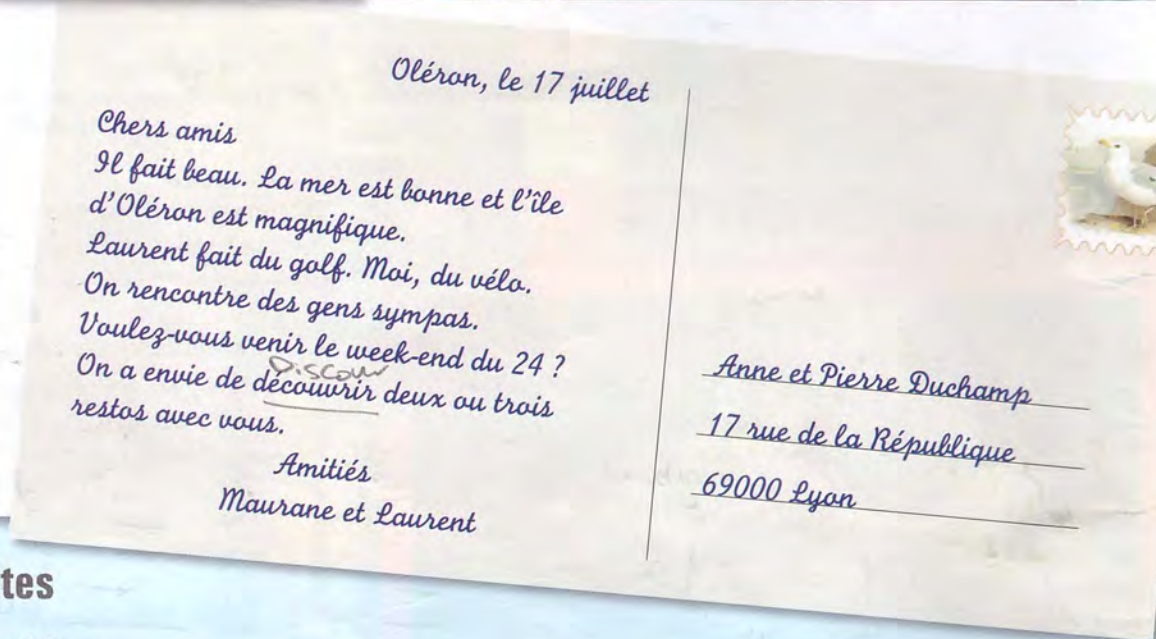 Oléron, le 17 juillet
Chers amis
Il fait beau. La mer est bonne et l'île
d'Oléron est magnifique.
Laurent fait du golf. Moi, du vélo.
On rencontre des gens sympas.
Voulez-vous venir le week-end du 24 ?
On a envie de découvrir deux ou trois
restos avec vous.
Amitiés
Maurane et Laurent
Anne et Pierre Duchamp
17 rue de la République
69000 Lyon
tes